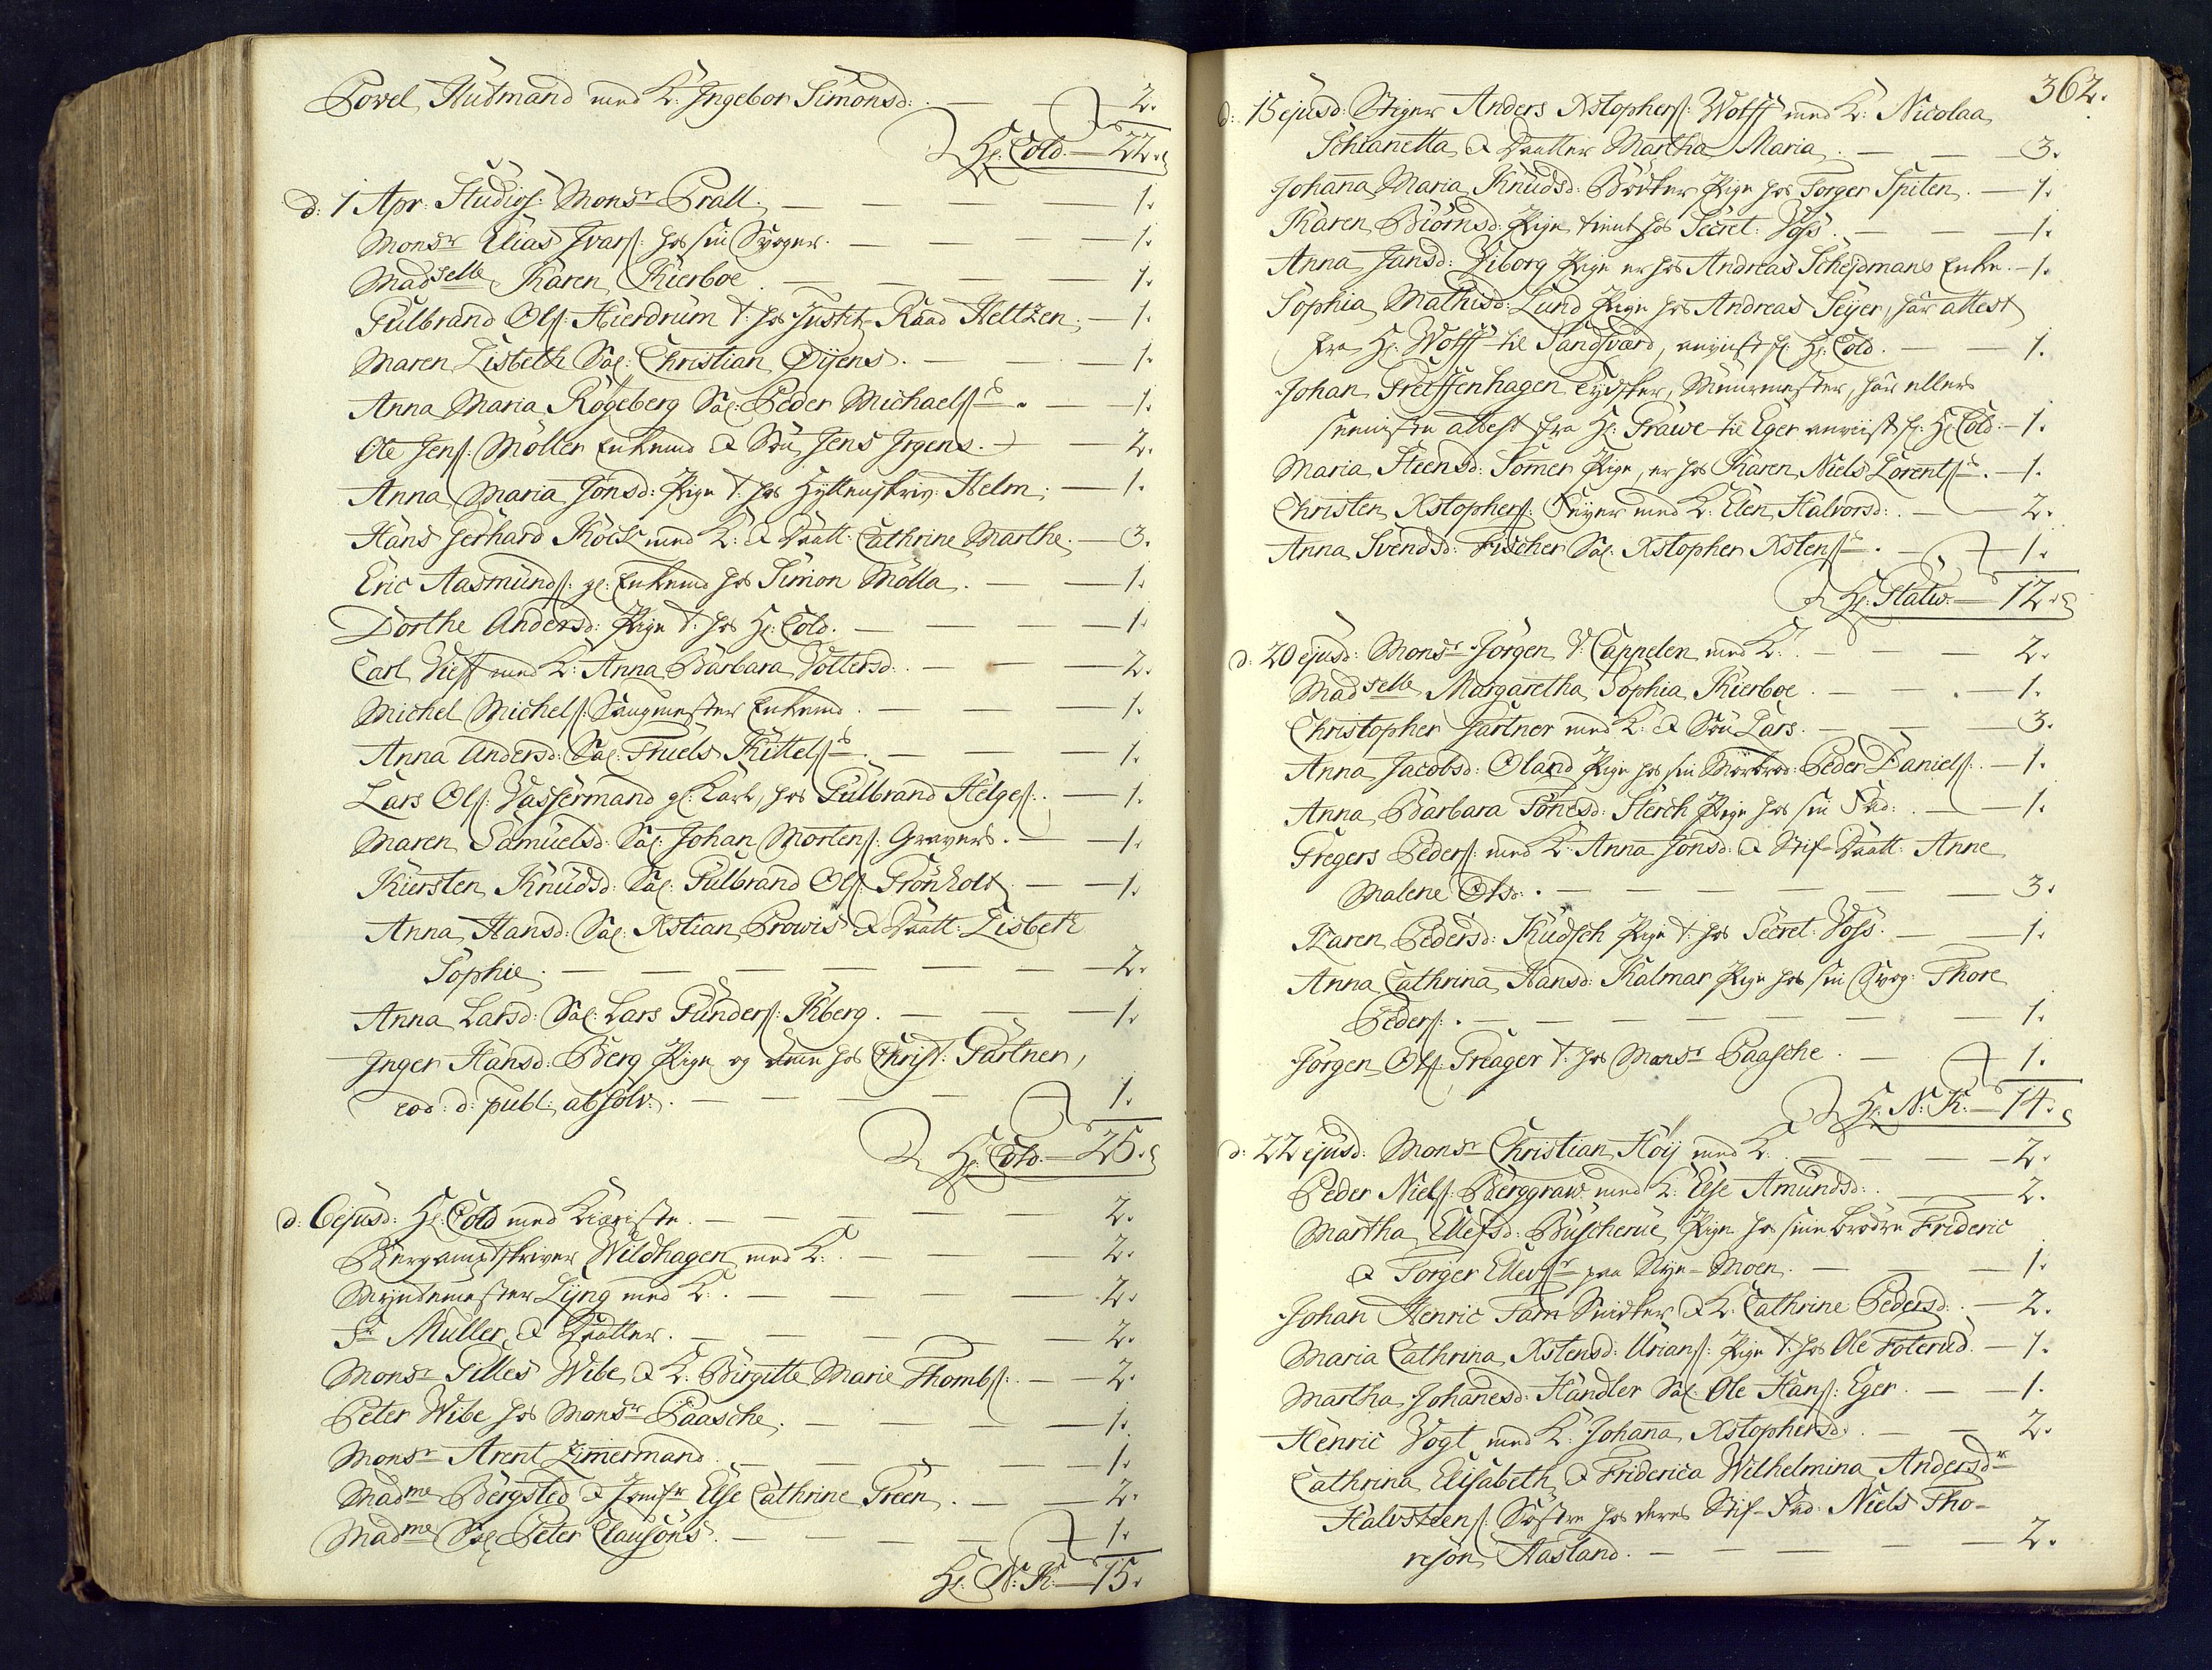 Povel Hutmand med K: Ingebor Simonsd: — 2.
Hr: Cold. — 22.
d: 1 Apr: Studios: Monsr Prall. — 1.
Monsr Elias Ivars: hos sin Svoger. — 1.
Madselle Karen Kierboe. — 1.
Gulbrand Ols: Hierdrum t: hos Justit-Raad Heltzen. — 1.
Maren Lisbeth Sal: Christian Dijens. — 1.
Anna Maria Rögeberg Sal: Peder Michaels: — 1.
Ole Jens: Möller Enkemd & Sön Jens Irgens. — 2.
Anna Maria Jonsd: Pige t: hos Hyttenskriv: Helm. — 1.
Hans Gerhard Kock med K: & Daatt: Cathrine Marthe. — 3.
Eric Aasmunds: gl: Enkemd hos Simon Molla. — 1.
Dorthe Andersd: Pige t: hos Hr: Cold. — 1.
Carl Vieff med K: Anna Barbara Voltersd: — 2.
Michel Michels: Saugmester Enkemd. — 1.
Anna Andersd: Sal: Truels Kittels: — 1.
Lars Ols: Vassermand gl: Karl, hos Gulbrand Helges: — 1.
Maren Samuelsd: Sal: Johan Mortens: Gravers. — 1.
Kiersten Knudsd: Sal: Gulbrand Ols: Grönholt — 1.
Anna Hansd: Sal: Xstian Prowis & Daatt: Lisbeth
Sophie. — 2.
Anna Larsd: Sal: Lars Gunders: Kberg. — 1.
Inger Hansd: Berg Pige og hos Christ: Gartner,
eod: d: publ: absolv: — 1.
Hr: Cold. — 25.
d: 6 ejusd: Hr: Cold med Kiæriste. — 2.
Bergamptskriver Wildhagen med K: — 2.
Myndtmester Lyng med K: — 2.
Fr Müller & Daatter. — 2.
Monsr Gilles Wibe & K: Birgitte Marie Thombs: — 2.
Peter Wibe hos Monsr Paasche. — 1.
Monsr Arent Zimermand. — 1.
Madme Bergsted & Jomfr Else Cathrine Green. — 2.
Madme Sal Peter Clausöns. — 1.
Hr: N: K: — 15.
362.
d: 15 ejusd: Stiger Anders Xstophers: Wolff med K: Nicolaa
Schianetta & Daatter Martha Maria. — 3.
Johana Maria Knudsd: Bödker Pige hos Torger Spiten. — 1.
Karen Biörnsd: Pige tient hos Secret: Voss. — 1.
Anna Jansd: Viborg Pige er hos Andreas Schejdmans Enke. — 1.
Sophia Mathisd: Lund Pige hos Andreas Seyer, har attest
fra Hr: Wolff til Sandsvard, anviist fr: Hr: Cold. — 1.
Johan Greiffenhagen Tydsker, Muurmester, har ellers
attest fra Hr: Grawe til Eger anviist fr: Hr: Cold. — 1.
Maria Steensd: Somer Pige, er hos Karen Niels Lorents: — 1.
Christen Xstophers: Seyer med K: Elen Halvorsd: — 2.
Anna Svendsd: Fischer Sal: Xstopher Xstens: — 1.
Hr: Statw. — 12.
d: 20 ejusd: Monsr Jörgen V: Cappelen med K: — 2.
Madselle Margaretha Sophia Kierboe. — 1.
Christopher Gartner med K: & Sön Lars. — 3.
Anna Jacobsd: Oland Pige hos sin Morbrod: Peder Daniels: — 1.
Anna Barbara Tönesd: Sterch Pige hos sin Fad: — 1.
Gregers Peders: med K: Anna Jonsd: & Stif-Daatt: Anne
Malene Olsd: — 3.
Karen Pedersd: Kudsch Pige t: hos Secret: Voss. — 1.
Anna Cathrina Hansd: Kalmar Pige hos sin Svog: Thore
Peders: — 1.
Jörgen Ols: Treager t: hos Monsr Paasche. — 1.
Hr: N: K: — 14.
d: 22 ejusd: Monsr Christian Höij med K: — 2.
Peder Niels: Berggraw: med K: Else Amundsd: — 2.
Martha Ellefsd: Buscherue Pige hos sine brödre Frideric
& Torger Ellevsr paa Nye-Moen. — 1.
Johan Henric Fam Snidker & K: Cathrine Pedersd: — 2.
Maria Cathrina Xstensd: Urians: Pige t: hos Ole Foterud. — 1.
Martha Johanesd: Händler Sal: Ole Hans: Eger. — 1.
Henric Vogt med K: Johana Xstophersd: — 2.
Cathrina Elisabeth & Friderica Wilhelmina Andersdr
Halvsteens: Söstre hos deres Stif-Fad: Niels Tho-
resön Aasland. — 2.